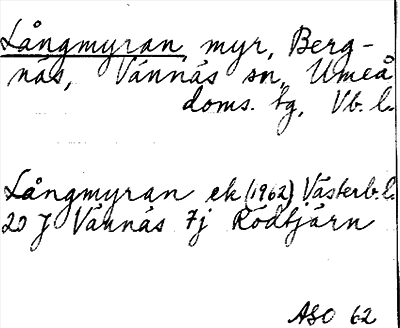 Långmyran, myr, Berg-
näs, Vännäs sn, Umeå
doms. tg, Vb. l.
Långmyran ek (1962) Västerb. l.
20 J Vännäs 7j Rödtjärn
ASO 62